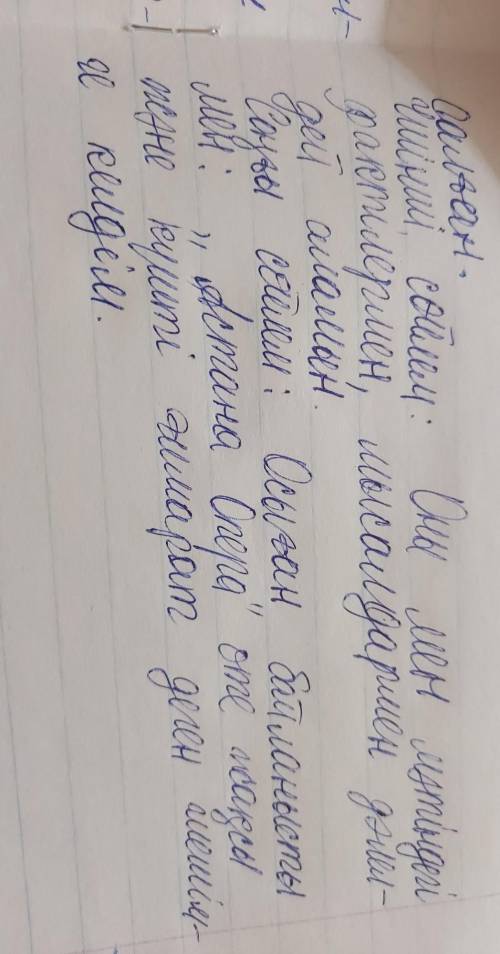 салған.
Үшінші сөйлем: Оны мен мәтіндегі
фактілермен, мысалдармен дәлел-
дей аламын.
Соңғы сөйлем: Осыған байланысты
мен: "Астана Опера" өте жақсы
және күшті ғимарат деген шешім-
ге келдім.